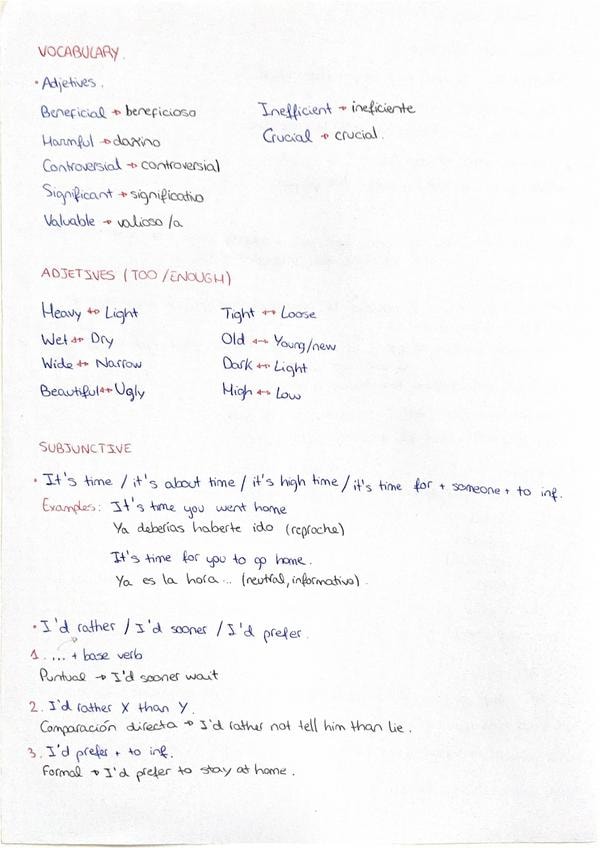 VOCABULARY.
• Adjetives.
Beneficial → beneficioso
Harmful → dañino
Controversial → controversial
Significant → significativo
Valuable → valioso/a
Inefficient → ineficiente
Crucial → crucial.
ADJETIVES (TOO/ENOUGH)
Heavy ↔ Light
Wet ↔ Dry
Wide ↔ Narrow
Beautiful ↔ Ugly
Tight ↔ Loose
Old ↔ Young/new
Dark ↔ Light
High ↔ Low
SUBJUNCTIVE
• It's time / it's about time / it's high time / it's time for + someone + to inf.
Examples: It's time you went home
Ya deberías haberte ido (reproche)
It's time for you to go home.
Ya es la hora... (neutral, informativo).
• I'd rather / I'd sooner / I'd prefer.
1. ... + base verb
Puntual → I'd sooner wait
2. I'd rather X than Y.
Comparación directa → I'd rather not tell him than lie.
3. I'd prefer + to inf.
Formal → I'd prefer to stay at home.